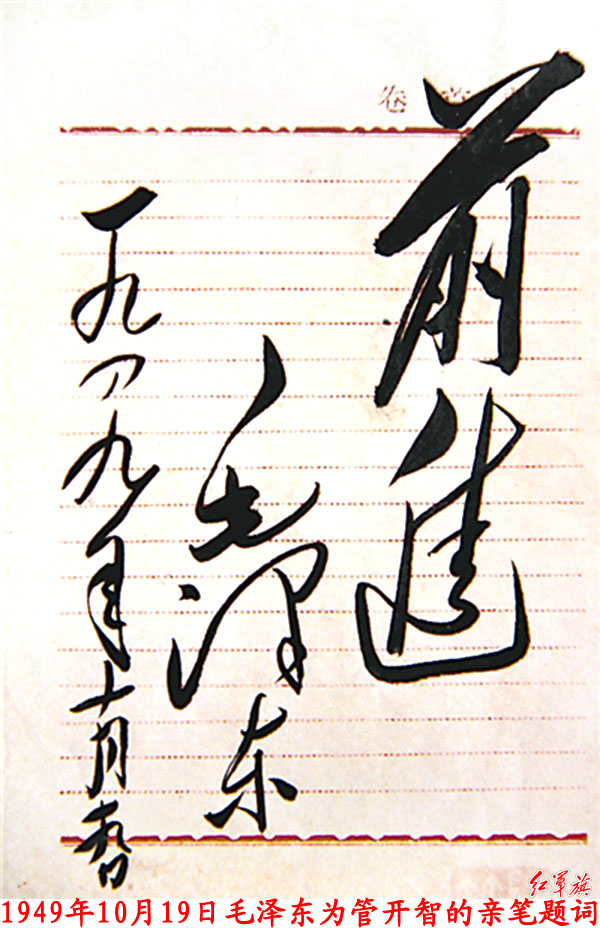 前進
毛泽东
一九四九年十月十九日
红军旗
1949年10月19日毛泽东为管开智的亲笔题词